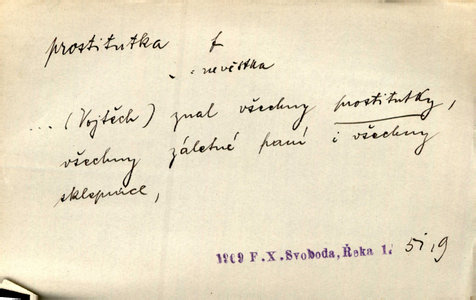 prostitutka f
nevěstka
... (Vojtěch) znal všechny prostitutky,
všechny záletné paní i všechny
sklepnice,
1909 F. X. Svoboda, Řeka 1.